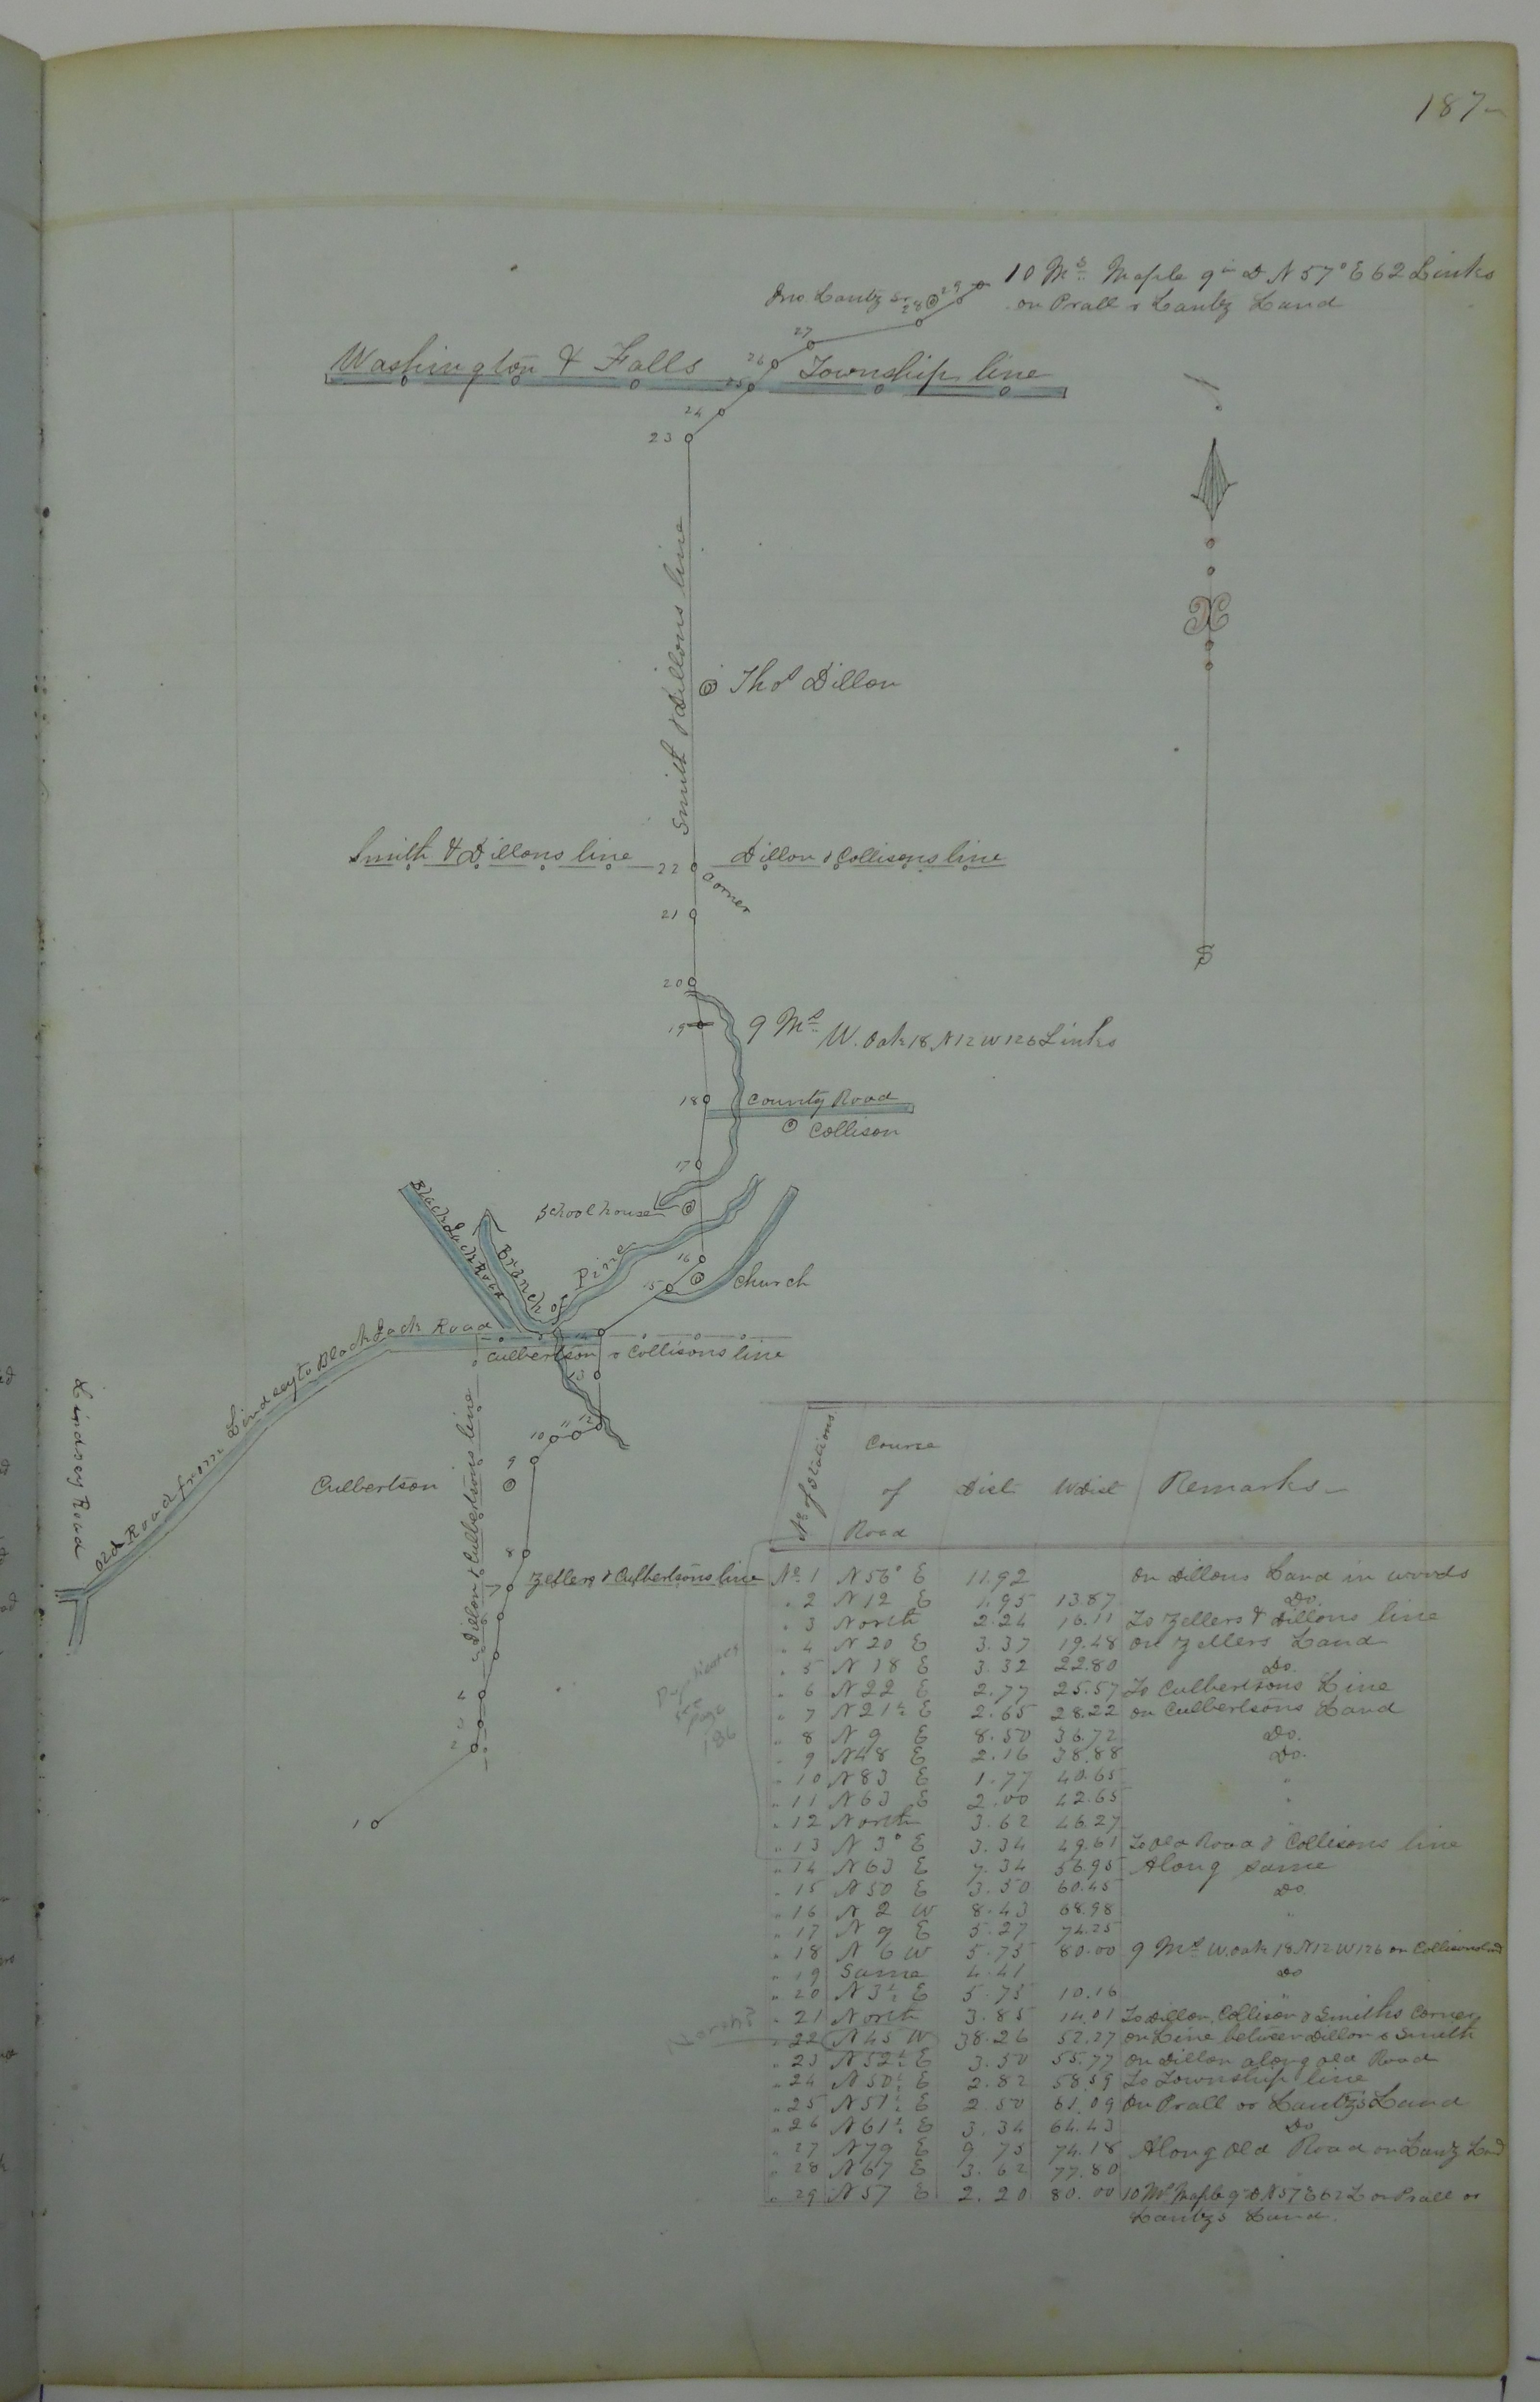 187
10 Ms. Maple 9 in D N 57° E 62 Links
on Prall & Lantz Land
Jno. Lantz Sr
29
28
27
26
25
Washington & Falls Township line
24
23
Smith & Dillons line
Thos Dillon
N
Smith & Dillons line
22
Dillon & Collisons line
Corner
21
20
S
19
9 Ms. W. Oak 18 N 12 W 126 Links
18
County Road
Collison
17
School house
Black Jack Road
Branch of Pine
16
15
Church
14
Old Road from Lindsey to Black Jack Road
Culbertson & Collisons line
13
Lindsey Road
12
11
10
9
Culbertson
Dillon & Culbertsons line
8
7
Zellers & Culbertsons line
4
3
2
1
No of Stations Course of Road Dist W Dist Remarks
No. 1 N 56° E 11.92 On Dillons Land in woods
" 2 N 12 E 1.95 13.87 Do.
" 3 North 2.24 16.11 To Zellers & Dillons line
" 4 N 20 E 3.37 19.48 on Zellers Land
" 5 N 18 E 3.32 22.80 Do.
" 6 N 22 E 2.77 25.57 To Culbertsons Line
" 7 N 21½ E 2.65 28.22 on Culbertsons Land
" 8 N 9 E 8.50 36.72 Do.
" 9 N 48 E 2.16 38.88 Do.
" 10 N 83 E 1.77 40.65 "
" 11 N 63 E 2.00 42.65 "
" 12 North 3.62 46.27 "
" 13 N 3° E 3.34 49.61 To Old Road & Collisons line
" 14 N 63 E 7.34 56.95 Along same
" 15 N 50 E 3.50 60.45 Do
" 16 N 2 W 8.43 68.98 "
" 17 N 9 E 5.27 74.25
" 18 N 6 W 5.75 80.00 9 Ms. W. Oak 18 N 12 W 126 on Collisons Lnd
" 19 Same 4.41 Do
" 20 N 3½ E 5.75 10.16 "
" 21 North 3.85 14.01 To Dillon, Collison & Smiths Corner
" 22 N 45 W 38.26 52.27 on Line between Dillon & Smith
" 23 N 52½ E 3.50 55.77 On Dillon along old Road
" 24 N 50½ E 2.82 58.59 To Township line
" 25 N 51½ E 2.50 61.09 On Prall or Lantzs Land
" 26 N 61½ E 3.34 64.43 Do
" 27 N 79 E 9 75 74.18 Along Old Road on Lantz Lnd
" 28 N 67 E 3.62 77.80
" 29 N 57 E 2.20 80.00 10 Ms Maple 9 in D N 57 E 62 L on Prall or
Lantzs Land.
see
page
186